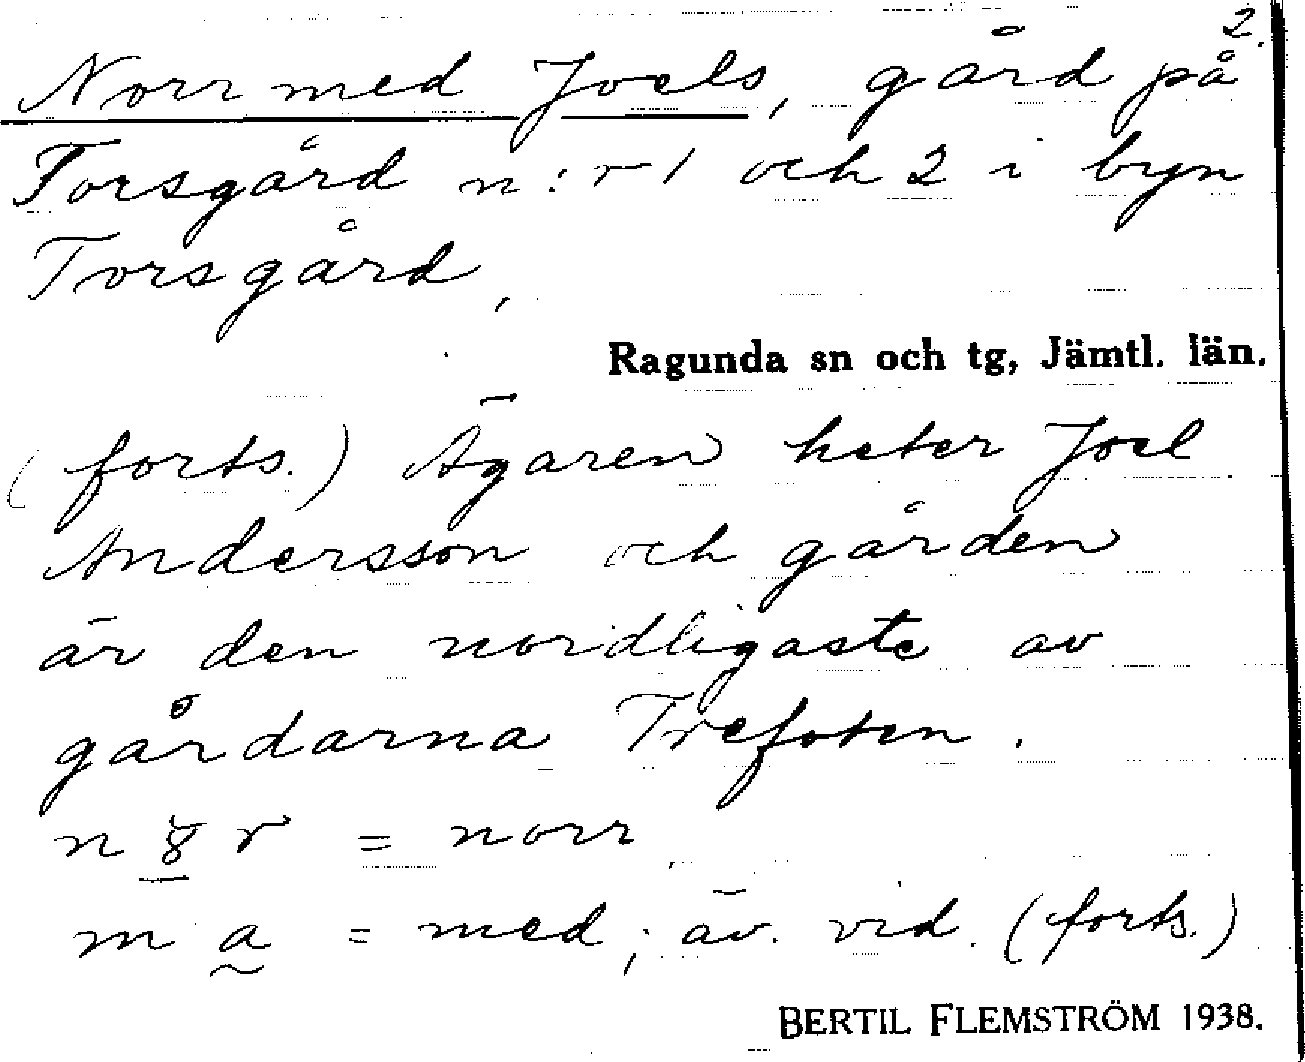 2.
Norr med Joels, gård på
Torsgård n:r 1 och 2 i byn
Torsgård,
Ragunda sn och tg, Jämtl. län.
(forts.) Ägaren heter Joel
Andersson och gården
är den nordligaste av
gårdarna Trefoten.
n r = norr
m a = med; äv. vid. (forts.)
BERTIL FLEMSTRÖM 1938.